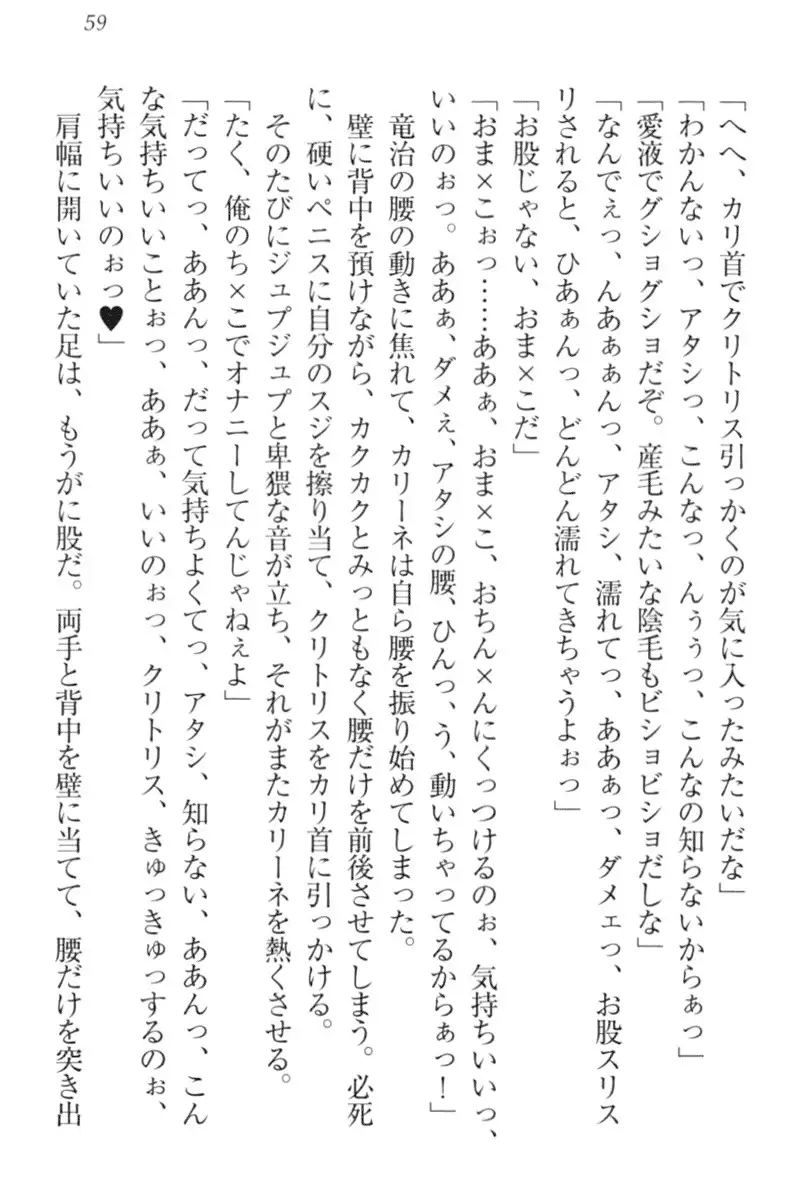 59
「へへ、カリ首でクリトリス引っかくのが気に入ったみたいだな」
「わかんないっ、アタシっ、こんなっ、んぅぅっ、こんなの知らないからぁっ」
「愛液でグショグショだぞ。産毛みたいな陰毛もビショビショだしな」
「なんでぇっ、んあぁぁんっ、アタシ、濡れてっ、ああぁっ、ダメェっ、お股スリス
リされると、ひあぁんっ、どんどん濡れてきちゃうよぉっ」
「お股じゃない、おま×こだ」
「おま×こぉっ……ああぁ、おま×こ、おちん×んにくっつけるのぉ、気持ちいいっ、
いいのぉっ。ああぁ、ダメぇ、アタシの腰、ひんっ、う、動いちゃってるからぁっ！」
竜治の腰の動きに焦れて、カリーネは自ら腰を振り始めてしまった。
壁に背中を預けながら、カクカクとみっともなく腰だけを前後させてしまう。必死
に、硬いペニスに自分のスジを擦り当て、クリトリスをカリ首に引っかける。
そのたびにジュプジュプと卑猥な音が立ち、それがまたカリーネを熱くさせる。
「たく、俺のち×こでオナニーしてんじゃねぇよ」
「だってっ、ああんっ、だって気持ちよくてっ、アタシ、知らない、ああんっ、こん
な気持ちいいことぉっ、ああぁ、いいのぉっ、クリトリス、きゅっきゅっするのぉ、
気持ちいいのぉっ♥」
肩幅に開いていた足は、もうがに股だ。両手と背中を壁に当てて、腰だけを突き出